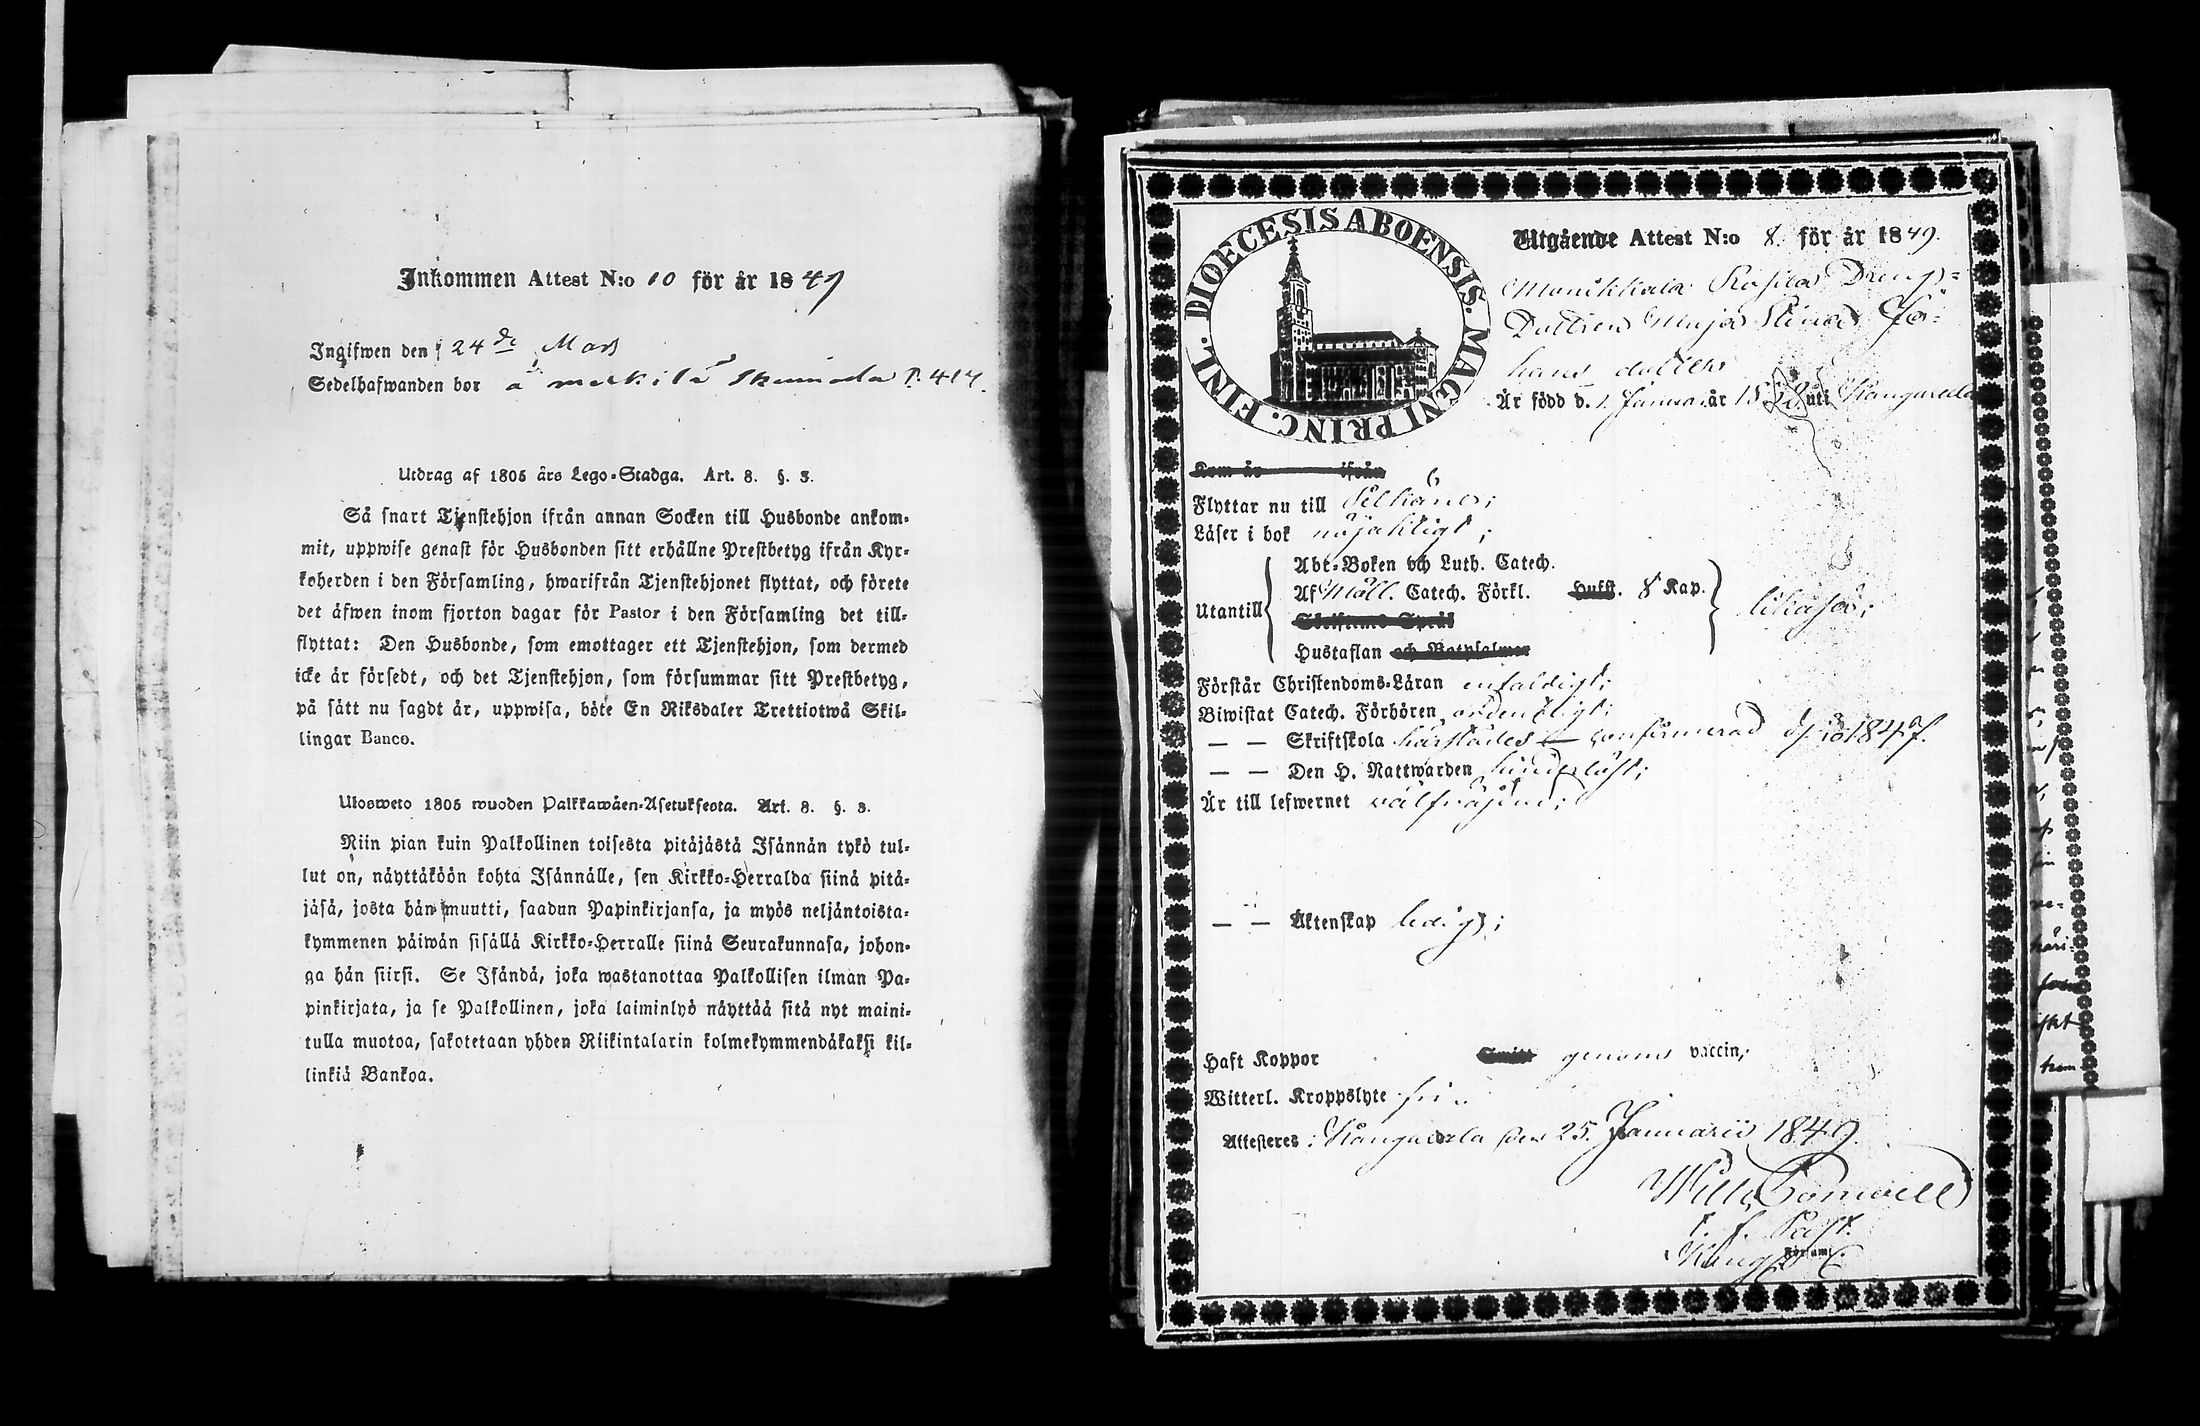 Inkommen Attest N:o 10 för år 1849
Ingifwen den 24de Mars
Sedelhafwanden bor å P. 414.
Utdrag af 1805 års Lego-Stadga. Art. 8. §. 3.
Så snart Tjenstehjon ifrån annan Socken till Husbonde ankom-
mit, uppwise genast för Husbonden sitt erhållne Prestbetyg ifrån Kyr-
koherden i den Församling, hwarifrån Tjenstehjonet flyttat, och förete
det äfwen inom fjorton dagar för Pastor i den Församling det till-
flyttat: Den Husbonde, som emottager ett Tjenstehjon, som dermed
icke är försedt, och det Tjenstehjon, som försummar sitt Prestbetyg,
på sätt nu sagdt är, uppwisa, böte En Riksdaler Trettiotwå Skil-
lingar Banco.
Ulosweto 1805 wuoden Palkkawäen-Asetuksesta. Art. 8. §. 3.
Niin pian kuin Palkollinen toisesta pitäjästä Isännän tykö tul-
lut on, näyttäköön kohta Isännälle, sen Kirkko-Herralda siinä pitä-
jäsä, josta hän muutti, saadun Papinkirjansa, ja myös neljäntoista-
kymmenen päiwän sisällä Kirkko-Herralle siinä Seurakunnasa, johon-
ga hän siirsi. Se Isändä, joka wastanottaa Palkollisen ilman Pa-
pinkirjata, ja se Palkollinen, joka laiminlyö näyttää sitä nyt maini-
tulla muotoa, sakotetaan yhden Riikintalarin kolmekymmendäkaksi kil-
linkiä Bankoa.
DIOECESIS ABOENSIS. MAGNI PRINC. FINL.
Utgående Attest N:o 8. för år 1849.
Dreng-
Dottren Maja Stina Jo-
hans dotter
Är född d. 1. Januari år 18 uti Kangasala
Kom år ifrån
Flyttar nu till
Läser i bok nöjaktigt;
Utantill
Abc-Boken och Luth. Catech.
Af Möll. Catech. Förkl. Hufst. 8 Kap.
Skriftenes Språk
Hustaflan och Botpsalmer
likaså;
Förstår Christendoms-Läran enfaldigt;
Biwistat Catech. Förhören ordentligt;
— — Skriftskola härstädes confirmerad 1847.
— — Den H. Nattwarden
Är till lefwernet välfräjdad;
— — Äktenskap ledig;
Haft Koppor genom vaccin;
Witterl. Kroppslyte fri.
Attesteres: Kangasala den 25. Januarii 1849.
t. f. Past.
Församl.